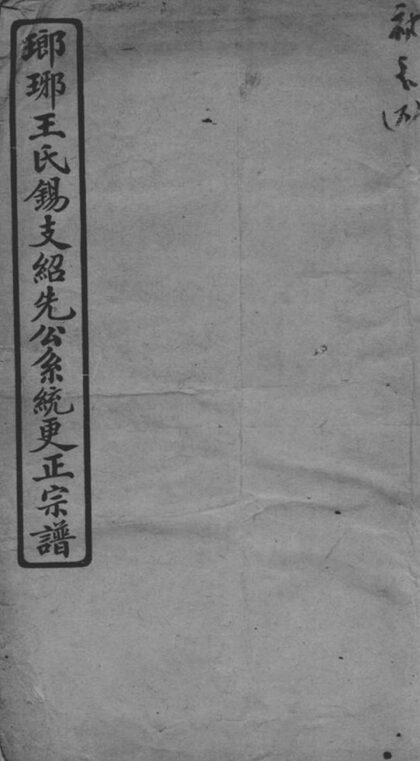 瑯琊王氏錫支紹先公系統更正宗譜